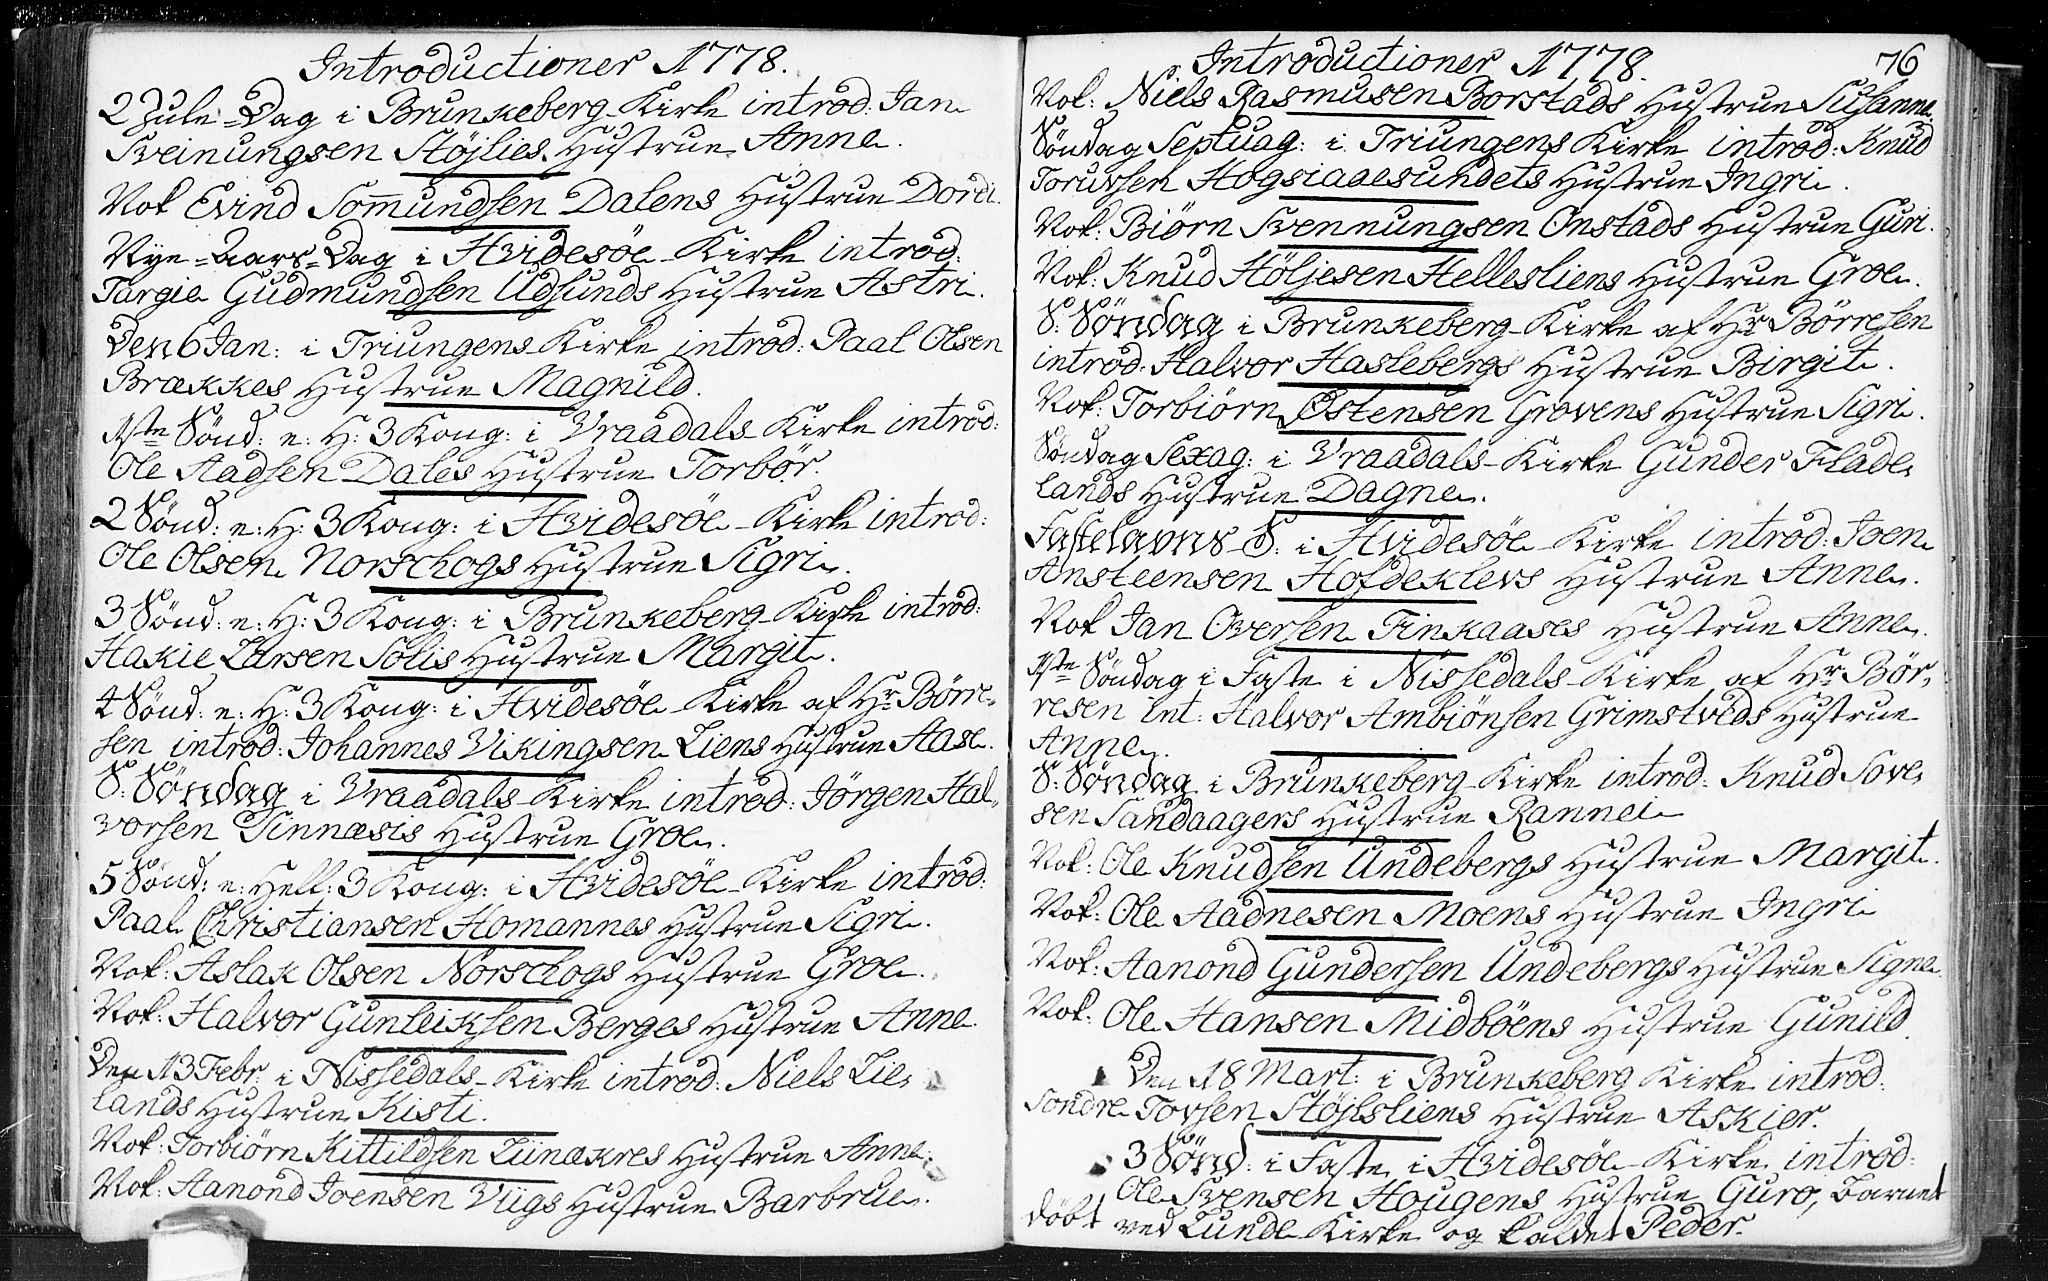 Introductioner 1778.
2 Jule-Dag i Brunkeberg-Kirke introd: Jan
Sveinungsen Støjlies Hustrue Anne.
Vok Evind Somundsen Dalens Hustrue Dorei.
Nye-Aars-Dag i Hvidesøe-Kirke introd:
Targie Gudmundsen Udsunds Hustrue Astri.
Den 6 Jan: i Triungens Kirke introd: Paal Olsen
Brækkes Hustrue Magnild.
1ste Sønd: e: H: 3 Kong: i Vraadals Kirke introd:
Ole Aadsen Dales Hustrue Torbør.
2 Sønd: e: H: 3 Kong: i Hvidesøe-Kirke introd:
Ole Olsen Norschogs Hustrue Sigri.
3 Sønd: e: H: 3 Kong: i Brunkeberg-Kirke introd:
Hakie Larsen Solis Hustrue Margit.
4 Sønd: e: H: 3 Kong: i Hvidesøe-Kirke af Hr Børre-
sen introd: Johannes Vikingsen Liens Hustrue Aase.
S: Søndag i Vraadals-Kirke introd: Jørgen Hal-
vorsen Sinnæsis Hustrue Groe.
5 Sønd: e: Hell: 3 Kong: i Hvidesøe-Kirke introd:
Paal Christiansen Homannes Hustrue Sigri.
Vok: Aslak Olsen Norschogs Hustrue Groe.
Vok: Halvor Gunleiksen Berges Hustrue Anne.
Den 13 Febr: i Nissedals-Kirke introd: Niels Lie-
lands Hustrue Kisti.
Vok: Torbiørn Kittildsen Liinækres Hustrue Anne.
Vok: Aanond Joensen Viigs Hustrue Barbrue.
Introductioner 1778.
76
Vok: Niels Rasmusen Borstads Hustrue Susanne.
Søndag Septuag: i Triungens Kirke introd: Knud
Toruvsen Hogsiaaesundets Hustrue Ingri.
Vok: Biørn Svennungsen Onstads Hustrue Guri.
Vok: Knud Höljesen Hellesliens Hustrue Groe.
S: Søndag i Brunkeberg-Kirke af Hr Børresen
introd: Halvor Haslebergs Hustrue Birgit.
Vok: Torbiørn Østensen Grovens Hustrue Sigri.
Søndag Sexag: i Vraadals-Kirke Gunder Flade-
lands Hustrue Dagne.
Fastelavns S: i Hvidesøe Kirke introd: Joen
Ansteensen Hofdeklevs Hustrue Anne.
Vok Jan Oversen Tinkaases Hustrue Anne.
1ste Søndag i Faste i Nissedals-Kirke af Hr Bør-
resen int: Halvor Ambiönsen Grimstveds Hustrue
Anne.
S: Søndag i Brunkeberg-Kirke introd: Knud Sove-
sen Sandaagers Hustrue Rannei
Vok: Ole Knudsen Undebergs Hustrue Margit.
Vok: Ole Aadnesen Moens Hustrue Ingri
Vok: Aanond Gundersen Undebergs Hustrue Signe.
Vok: Ole Hansen Midbøens Hustrue Gunild.
Den 18 Mart: i Brunkeberg Kirke introd:
Sondre Tovsen Støjlsliens Hustrue Askier.
3 Sønd: i Faste i Hvidesøe-Kirke introd:
Ole Svensen Hougens Hustrue Guro, Barnet
døbt ved Lunde-Kirke og kaldet Peder.